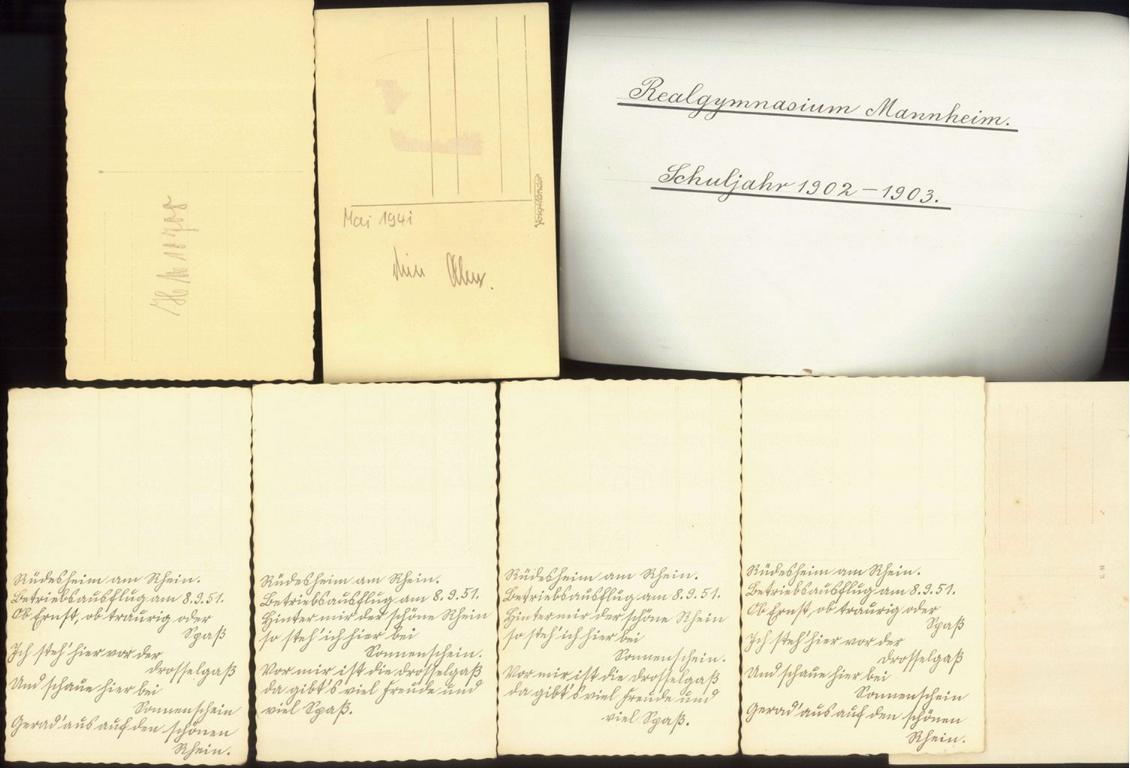 Mai 1941
Voigtländer
Realgymnasium Mannheim.
Schuljahr 1902–1903.
Rüdesheim am Rhein.
Betriebsausflug am 8.9.51.
Ob Ernst, ob traurig oder
Spaß
Ich steh' hier vor der
Drosselgaß
Und schaue hier bei
Sonnenschein
Gerad'aus auf den schönen
Rhein.
Rüdesheim am Rhein.
Betriebsausflug am 8.9.51.
Hinter mir der schöne Rhein
so steh' ich hier bei
Sonnenschein.
Vor mir ist die Drosselgaß
da gibt's viel Freude und
viel Spaß.
Rüdesheim am Rhein.
Betriebsausflug am 8.9.51.
Hinter mir der schöne Rhein
so steh' ich hier bei
Sonnenschein.
Vor mir ist die Drosselgaß
da gibt's viel Freude und
viel Spaß.
Rüdesheim am Rhein.
Betriebsausflug am 8.9.51.
Ob Ernst, ob traurig oder
Spaß
Ich steh' hier vor der
Drosselgaß
Und schaue hier bei
Sonnenschein
Gerad'aus auf den schönen
Rhein.